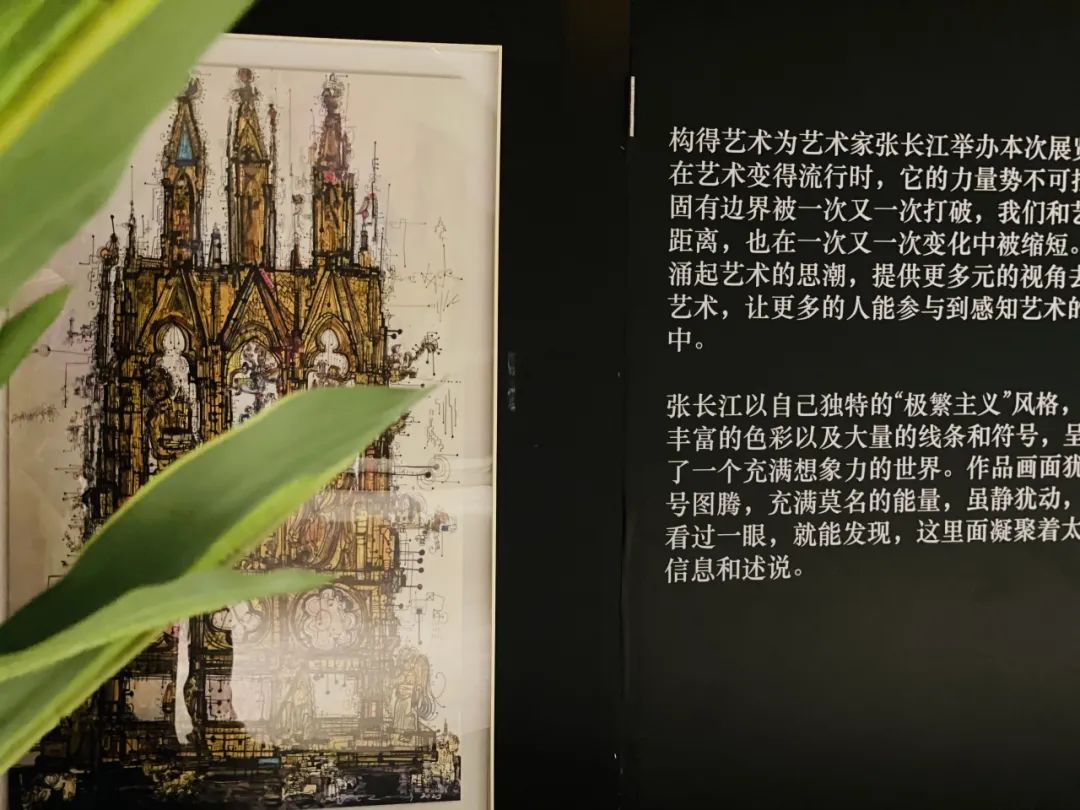 构得艺术为艺术家张长江举办本次展
在艺术变得流行时，它的力量势不可
固有边界被一次又一次打破，我们和
距离，也在一次又一次变化中被缩短。
涌起艺术的思潮，提供更多元的视角去
艺术，让更多的人能参与到感知艺术的
中。
张长江以自己独特的“极繁主义”风格，
丰富的色彩以及大量的线条和符号，呈
了一个充满想象力的世界。作品画面犹
号图腾，充满莫名的能量，虽静犹动，
看过一眼，就能发现，这里面凝聚着太
信息和述说。